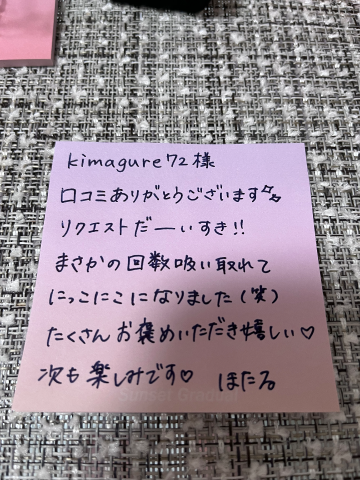 kimagure72様
口コミありがとうございます
リクエストだーいすき!!
まさかの回数吸い取れて
にっこにこになりました(笑)
たくさんお褒めいただき嬉しい♡
次も楽しみです♡ ほたる
Sunset Gradual